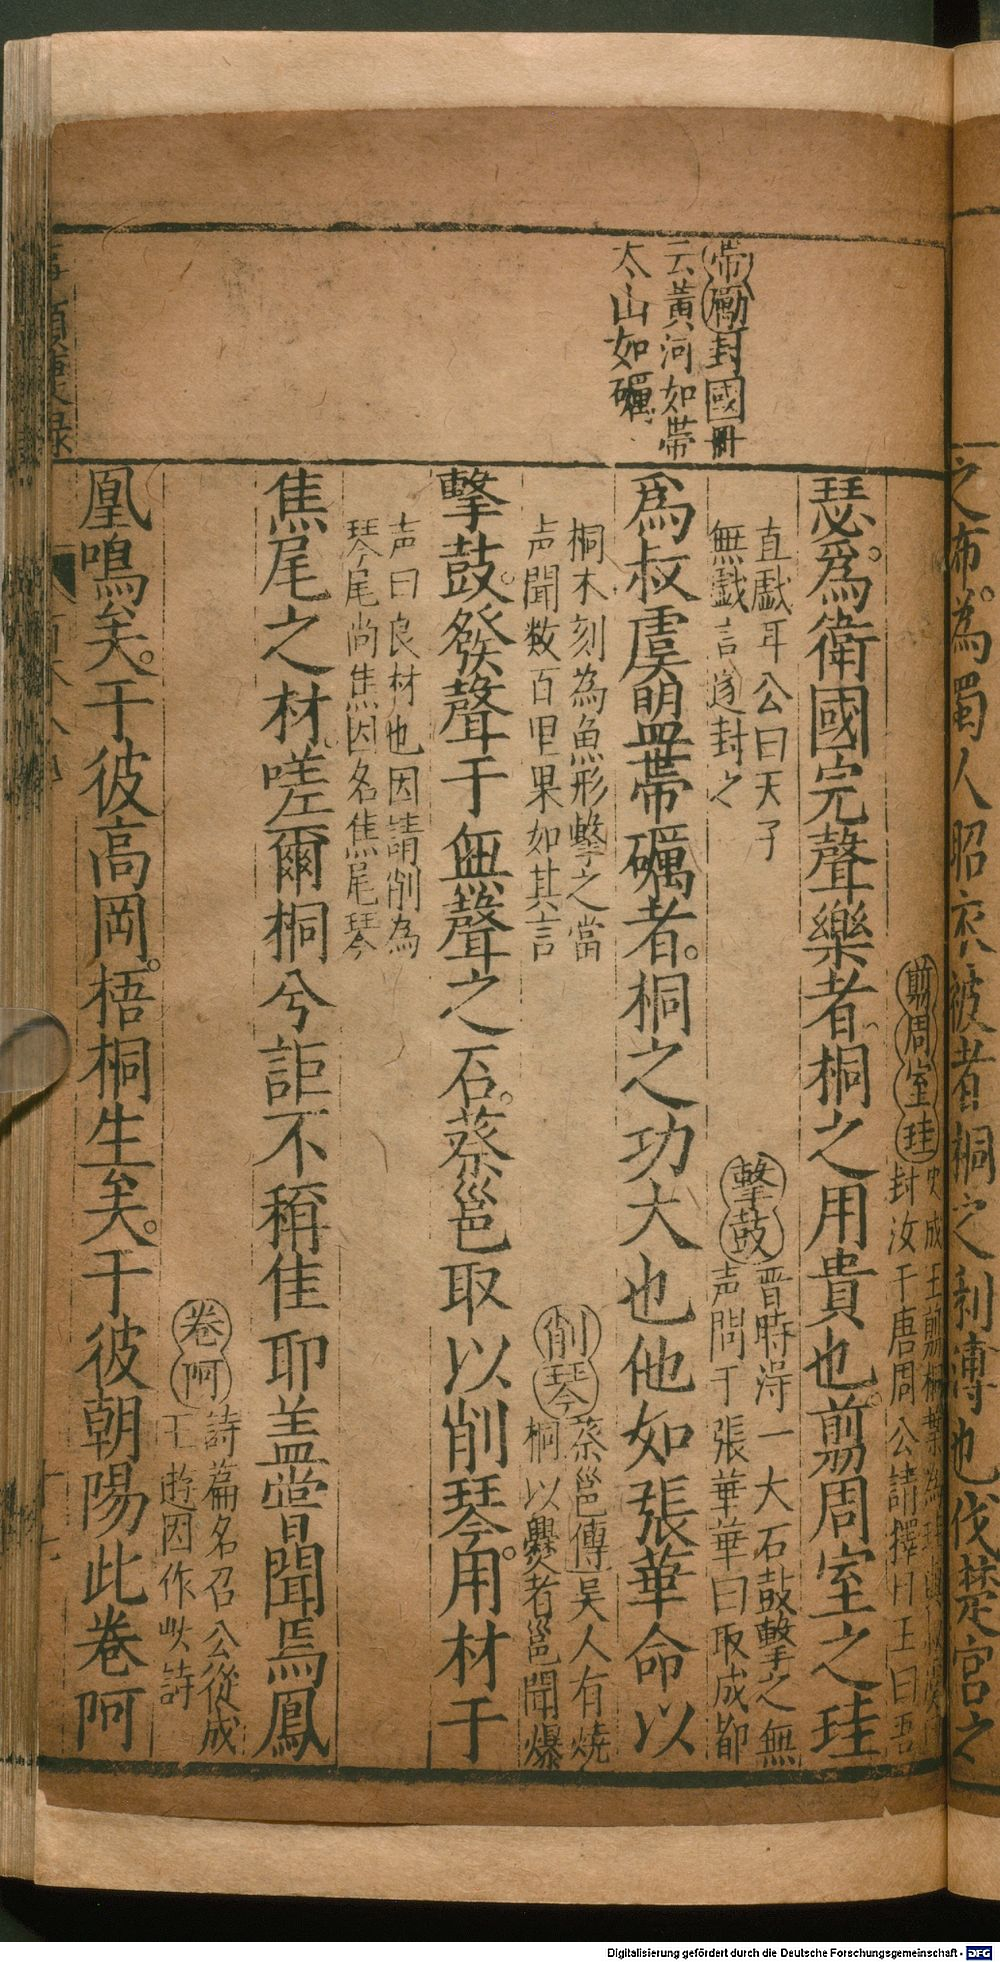 之布。為蜀人昭衣被者桐之利溥也伐楚宮之
帶礪封國冊
云黃河如帶
太山如礪
瑟。爲衛國完聲樂者桐之用貴也。翦周室之珪
剪周室珪 史成王剪桐葉為珪與叔虞曰
封汝于唐周公請擇日王曰吾
直戲耳公曰天子
無戯言遂封之
爲叔虞盟帶礪者。桐之功大也他如張華命以
擊鼓 晋時淂一大石鼓擊之無
声問于張華華曰取成都
桐木刻為魚形擊之當
声聞数百里果如其言
擊鼓。發聲于無聲之石。蔡邕取以削琴。用材于
削琴 蔡邕傳吴人有燒
桐以爨者邕聞爆
声曰良材也因請削為
琴尾尚焦因名焦尾琴
焦尾之材嗟爾桐兮詎不稱隹耶盖嘗聞焉鳳
卷阿 詩篇名召公從成
王遊因作此詩
凰鳴矣。于彼高岡。梧桐生矣。于彼朝陽此卷阿
Digitalisierung gefördert durch die Deutsche Forschungsgemeinschaft - DFG